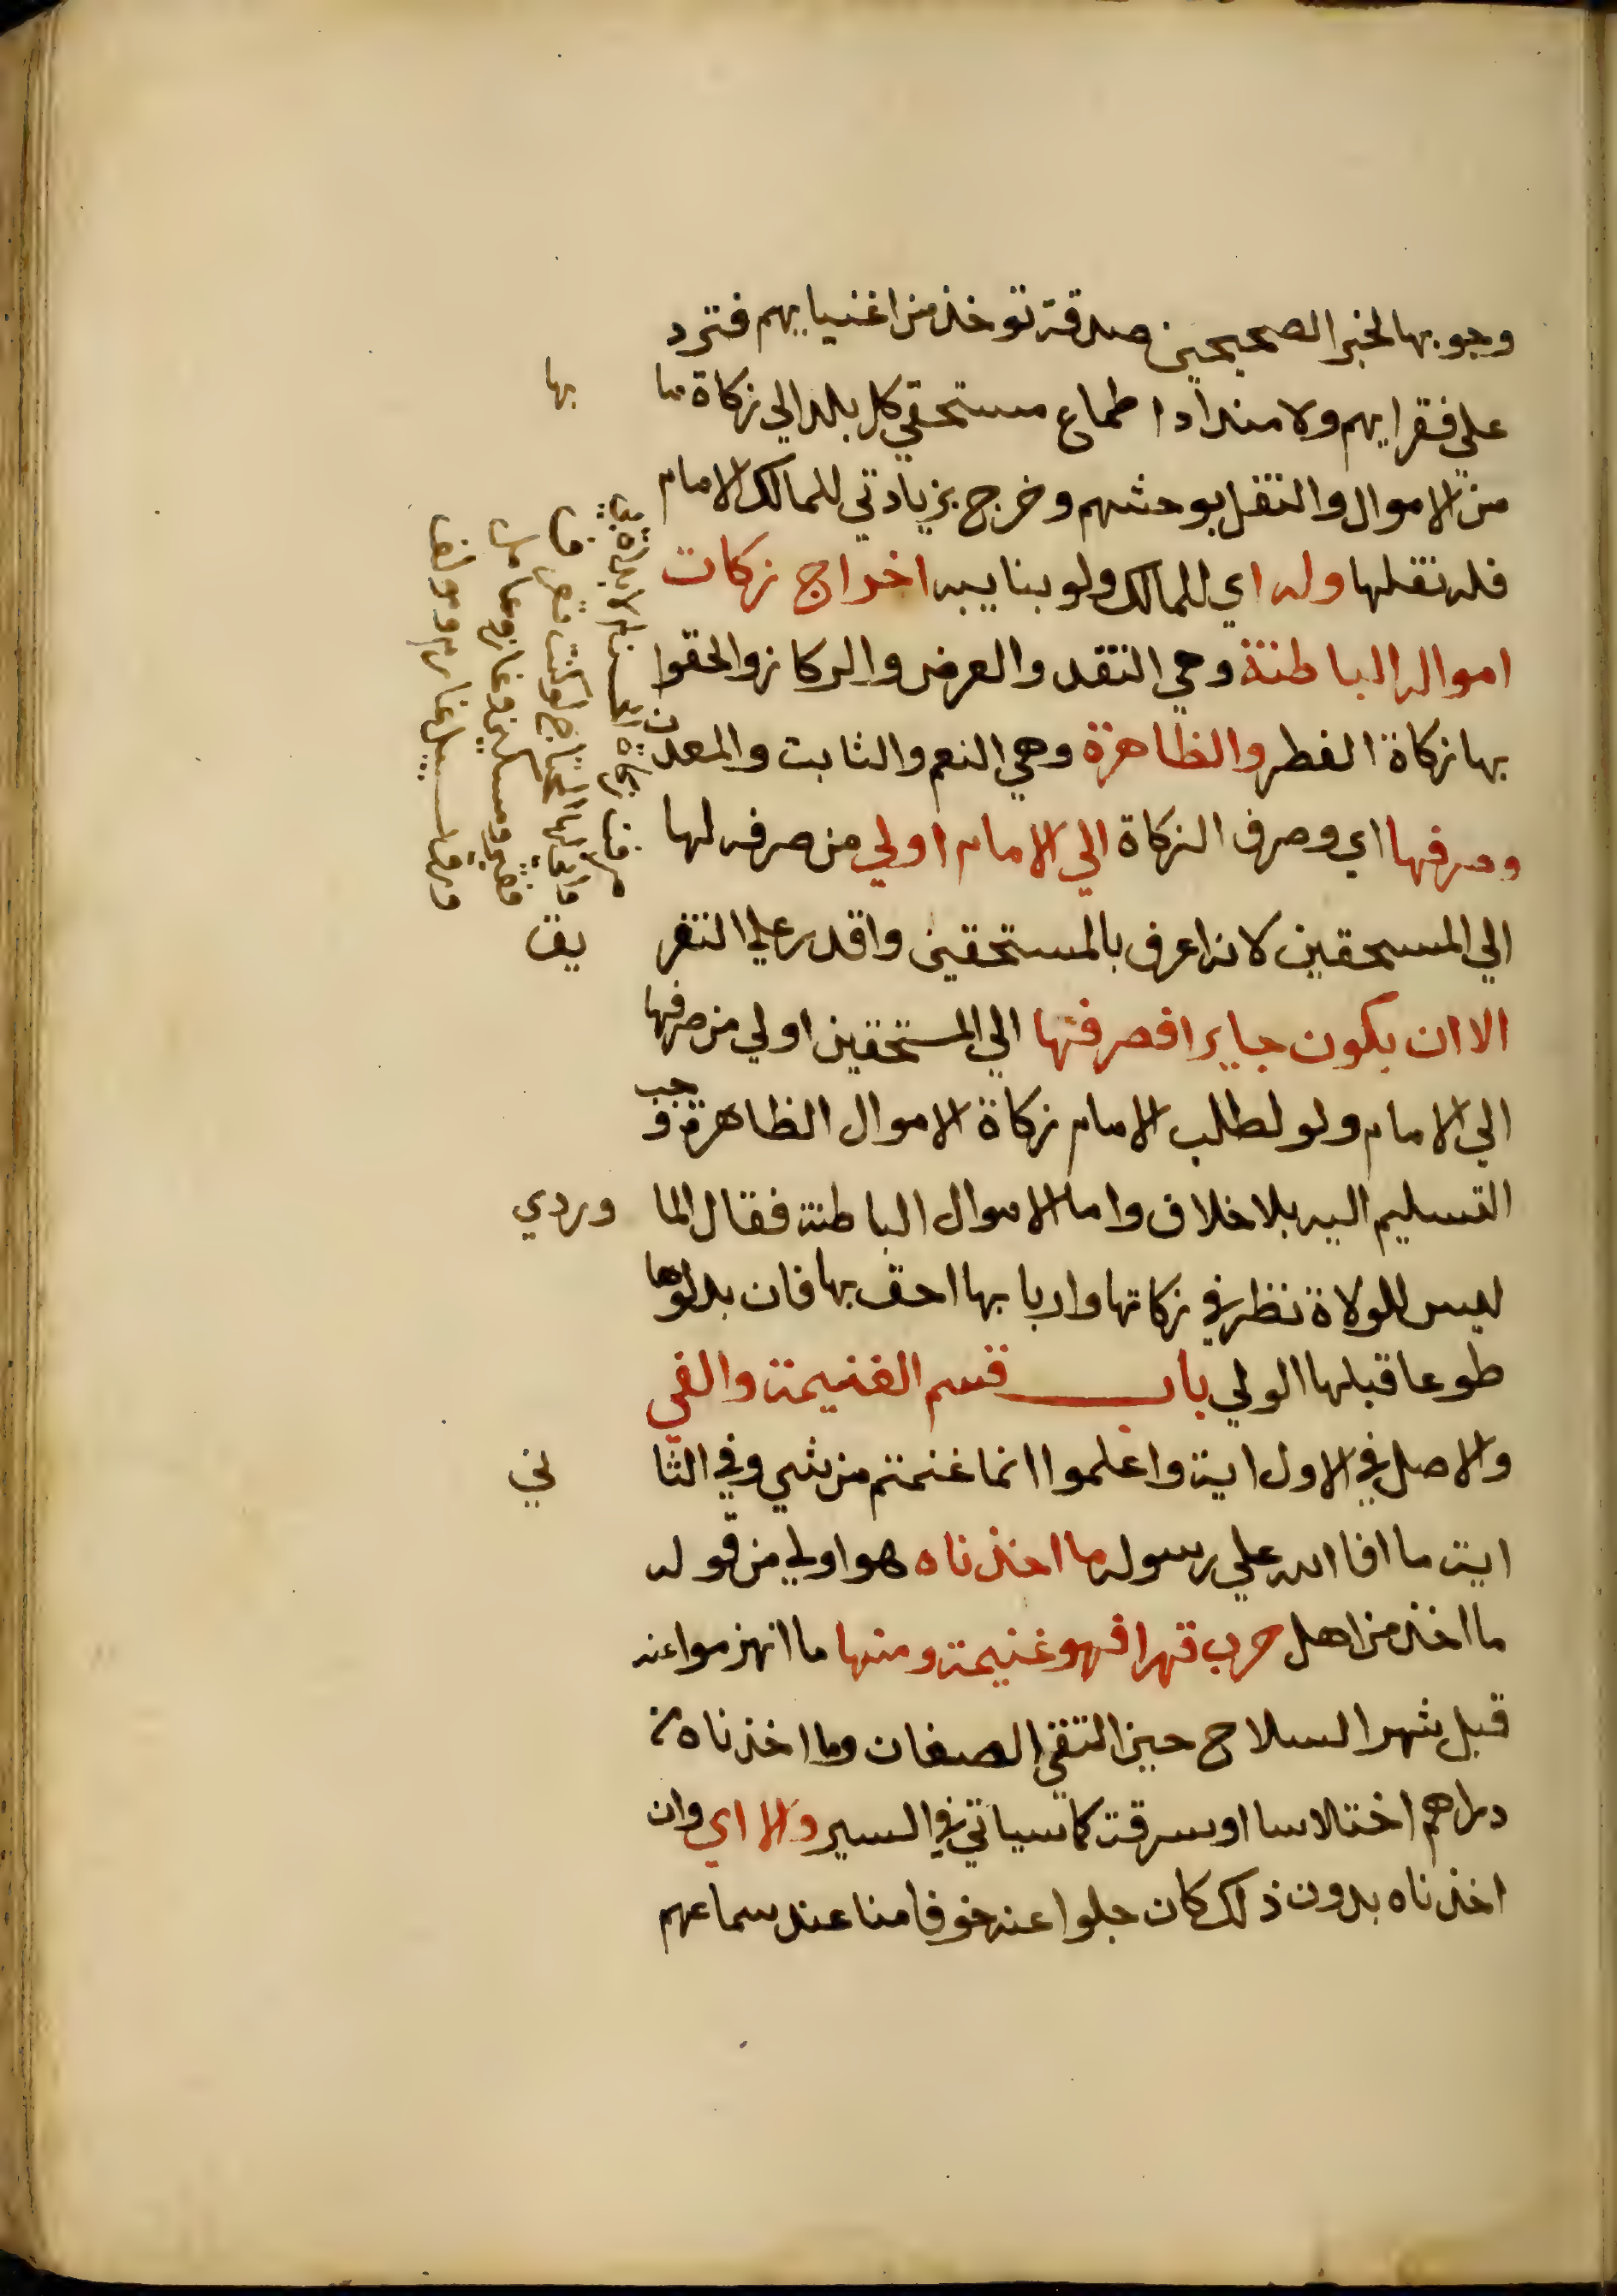 وجوبها لخبر الصحيحين صدقة توخذ من اغنيايهم فترد
علي فقرايهم ولامتداد اطماع مستحقي كل بلد الي زكاة ما بها
من الاموال والنقل يوحشهم وخرج بزيادتي للمالك الامام
فله نقلها وله اي للمالك ولو بنايبه اخراج زكات
امواله الباطنة وهي النقد والعرض والركاز والحقوا
بها زكاة الفطر والظاهرة وهي النعم والثابت والمعدن
وصرفها اي وصرف الزكاة الي الامام اولي من صرفه لها
الي المسحقين لانه اعرف بالمستحقين واقدر علي التفريق
الا ان يكون جايرا فصرفها الي المستحقين اولي من صرفها
الي الامام ولو لطلب الامام زكاة الاموال الظاهرة وجب
التسليم اليه بلا خلاف واما الاموال الباطنة فقال الماوردي
ليس للولاة نظر في زكاتها واربابها احق بها فان بدلوها
طوعا قبلها الولي باب قسم الغنيمة والفي
والاصل في الاول اية واعلموا انما غنمتم من شي وفي الثاني
اية ما افا الله علي رسوله ما اخذناه هو اولي من قوله
ما اخذ من اهل حرب قهرا فهو غنيمة ومنها ما انهزموا عنه
قبل شهر السلاح حين التقي الصفان وما اخذناه من
دراهم اختلاسا او سرقة كما سياتي في السير والا اي وان
اخذناه بدون ذلك كان جلوا عنه خوفا منا عند سماعهم